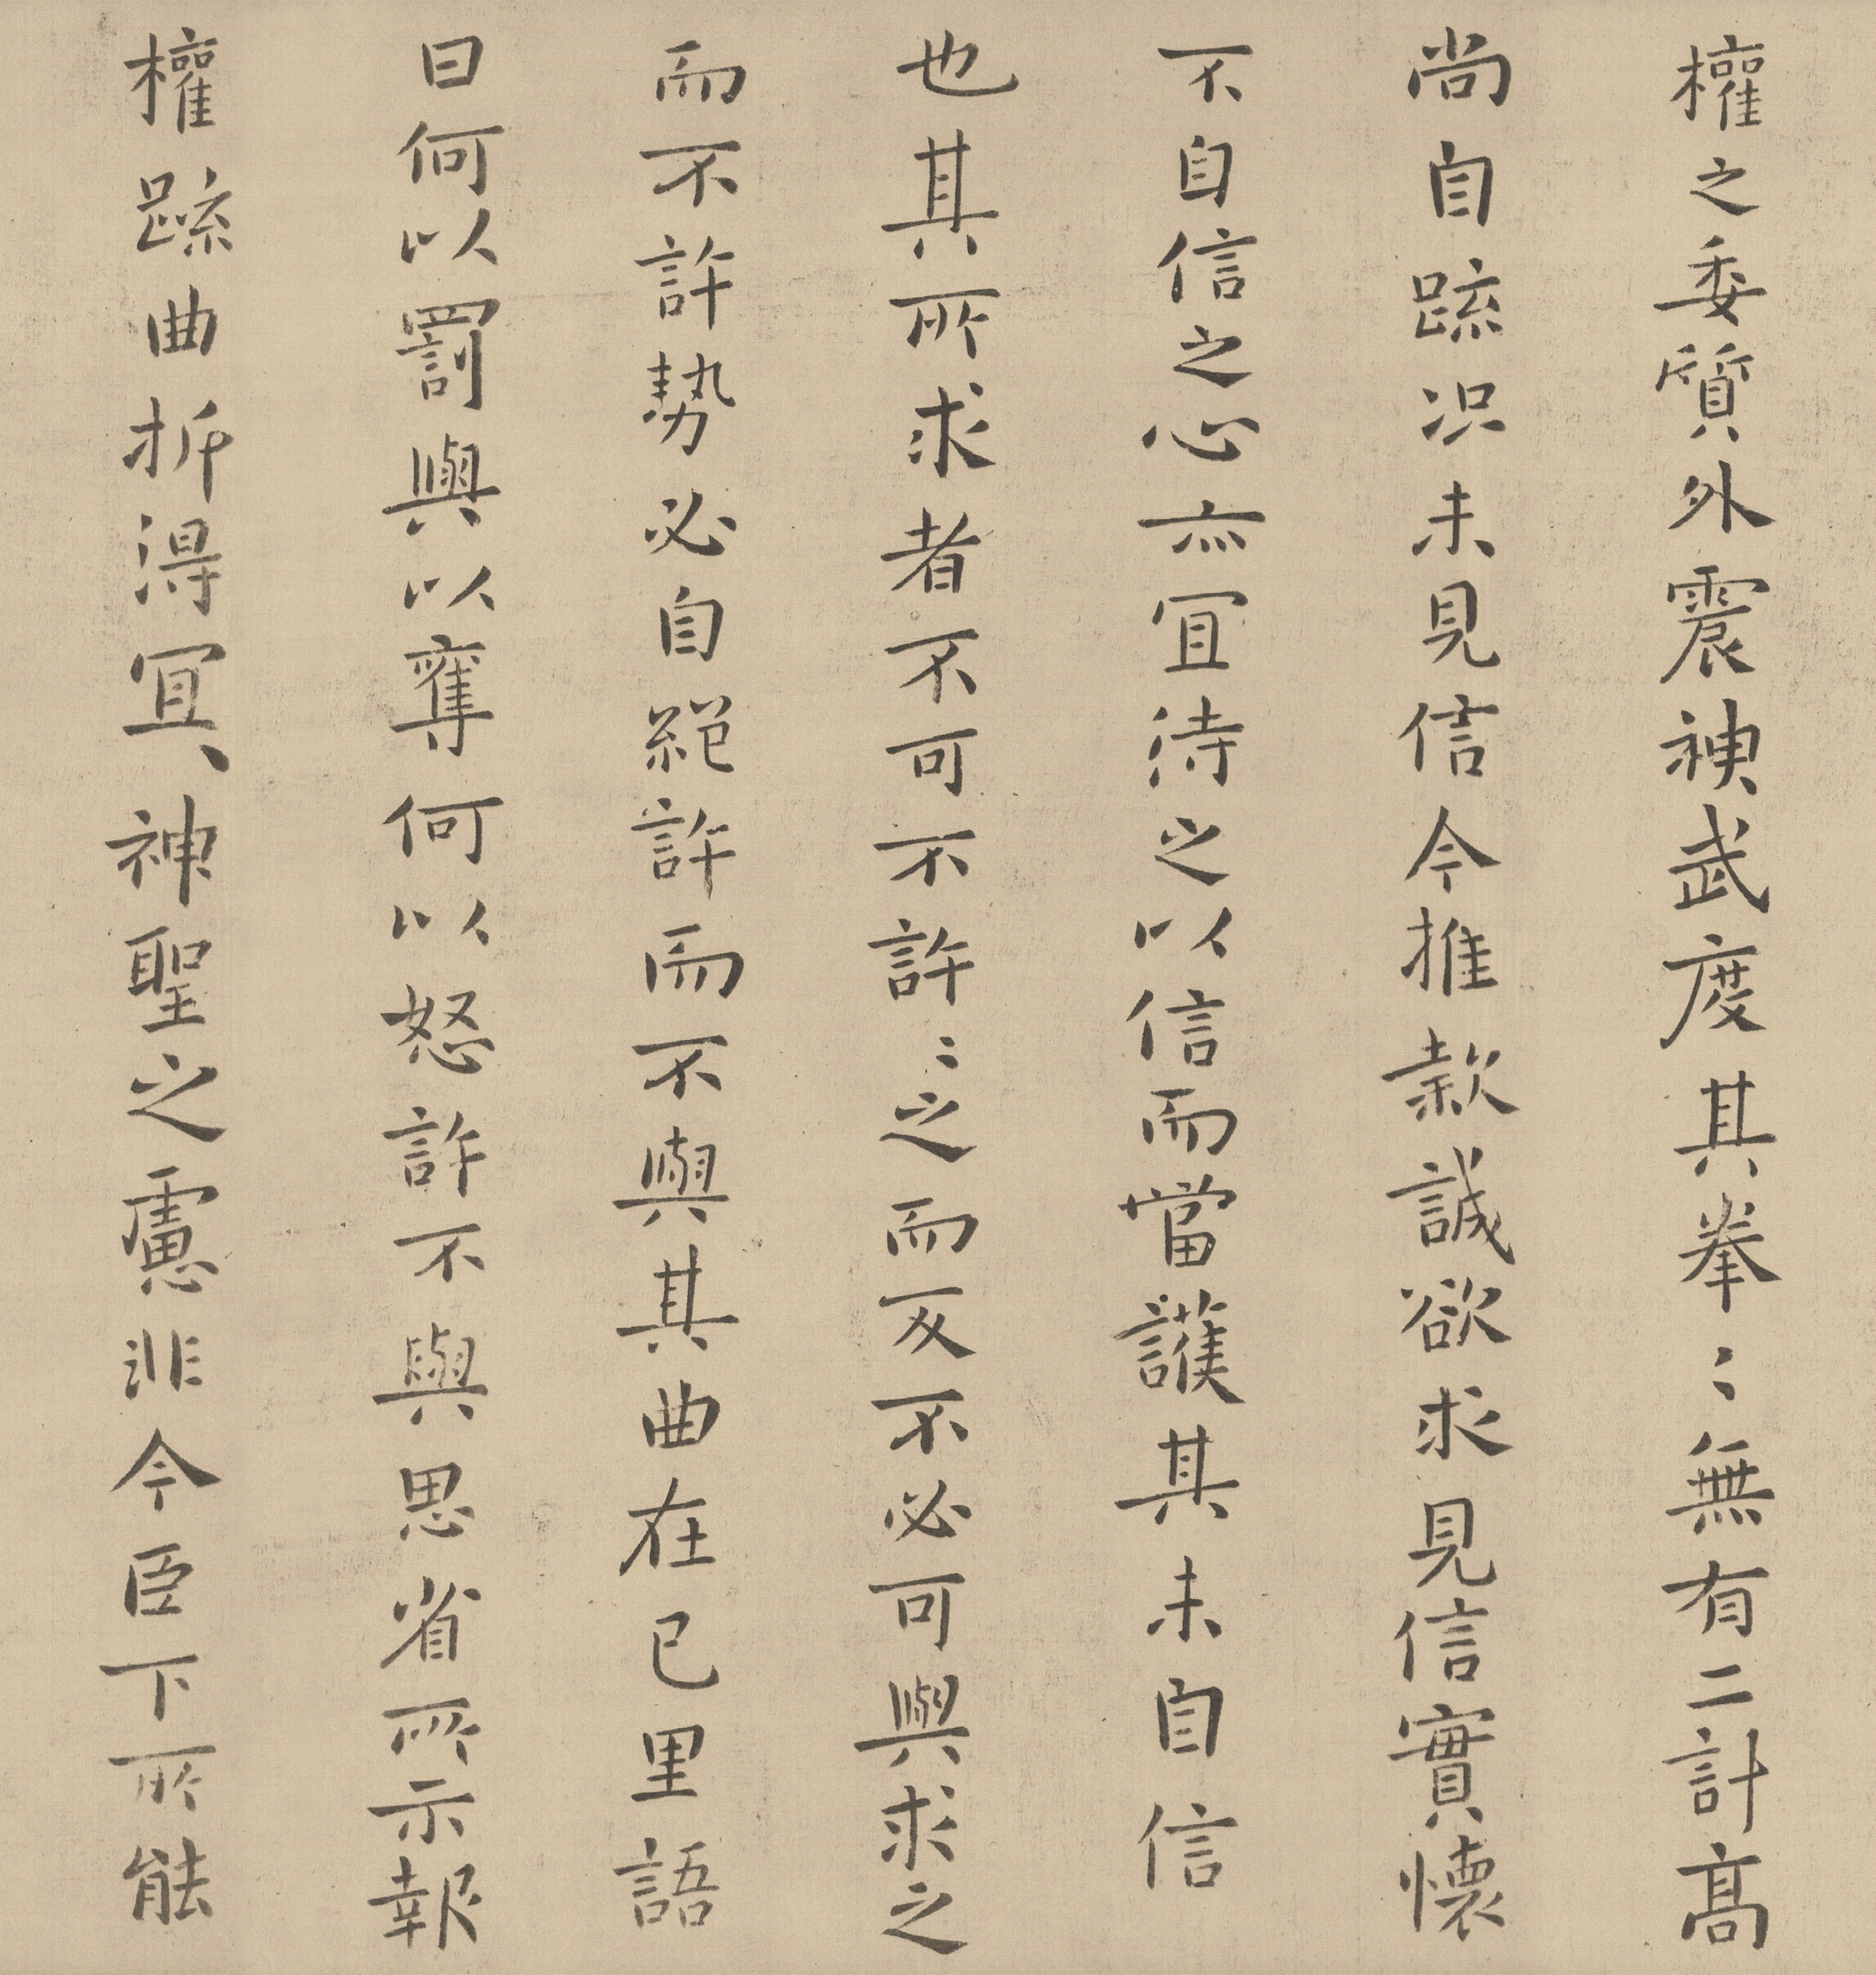 權之委質外震神武度其拳〻無有二計高
尚自踈况未見信今推款誠欲求見信實懷
不自信之心亦宜待之以信而當護其未自信
也其所求者不可不許〻之而反不必可與求之
而不許勢必自絕許而不與其曲在己里語
曰何以罰與以奪何以怒許不與思省所示報
權踈曲折得宜神聖之慮非今臣下所能